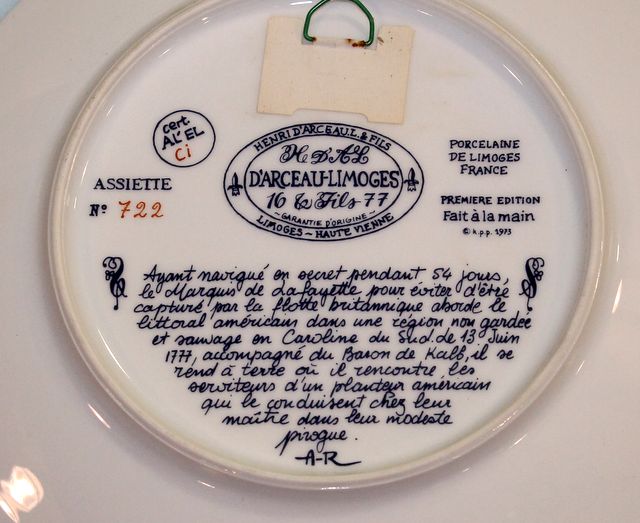 cert.
AL'EL
Ci
ASSIETTE
Nº 722
HENRI D'ARCEAU.L.& FILS
H D'AL
D'ARCEAU-LIMOGES
16 & Fils 77
~GARANTIE D'ORIGINE~
LIMOGES ~ HAUTE VIENNE
PORCELAINE
DE LIMOGES
FRANCE
PREMIERE EDITION
Fait à la main
© k.p.p. 1973
Ayant navigué en secret pendant 54 jours,
le Marquis de Lafayette pour éviter d'être
capturé par la flotte britannique aborde le
littoral américain dans une région non gardée
et sauvage en Caroline du Sud. de 13 Juin
1777, accompagné du Baron de Kalb, il se
rend à terre où il rencontre les
serviteurs d'un planteur américain
qui le conduisent chez leur
maître dans leur modeste
pirogue.
A-R